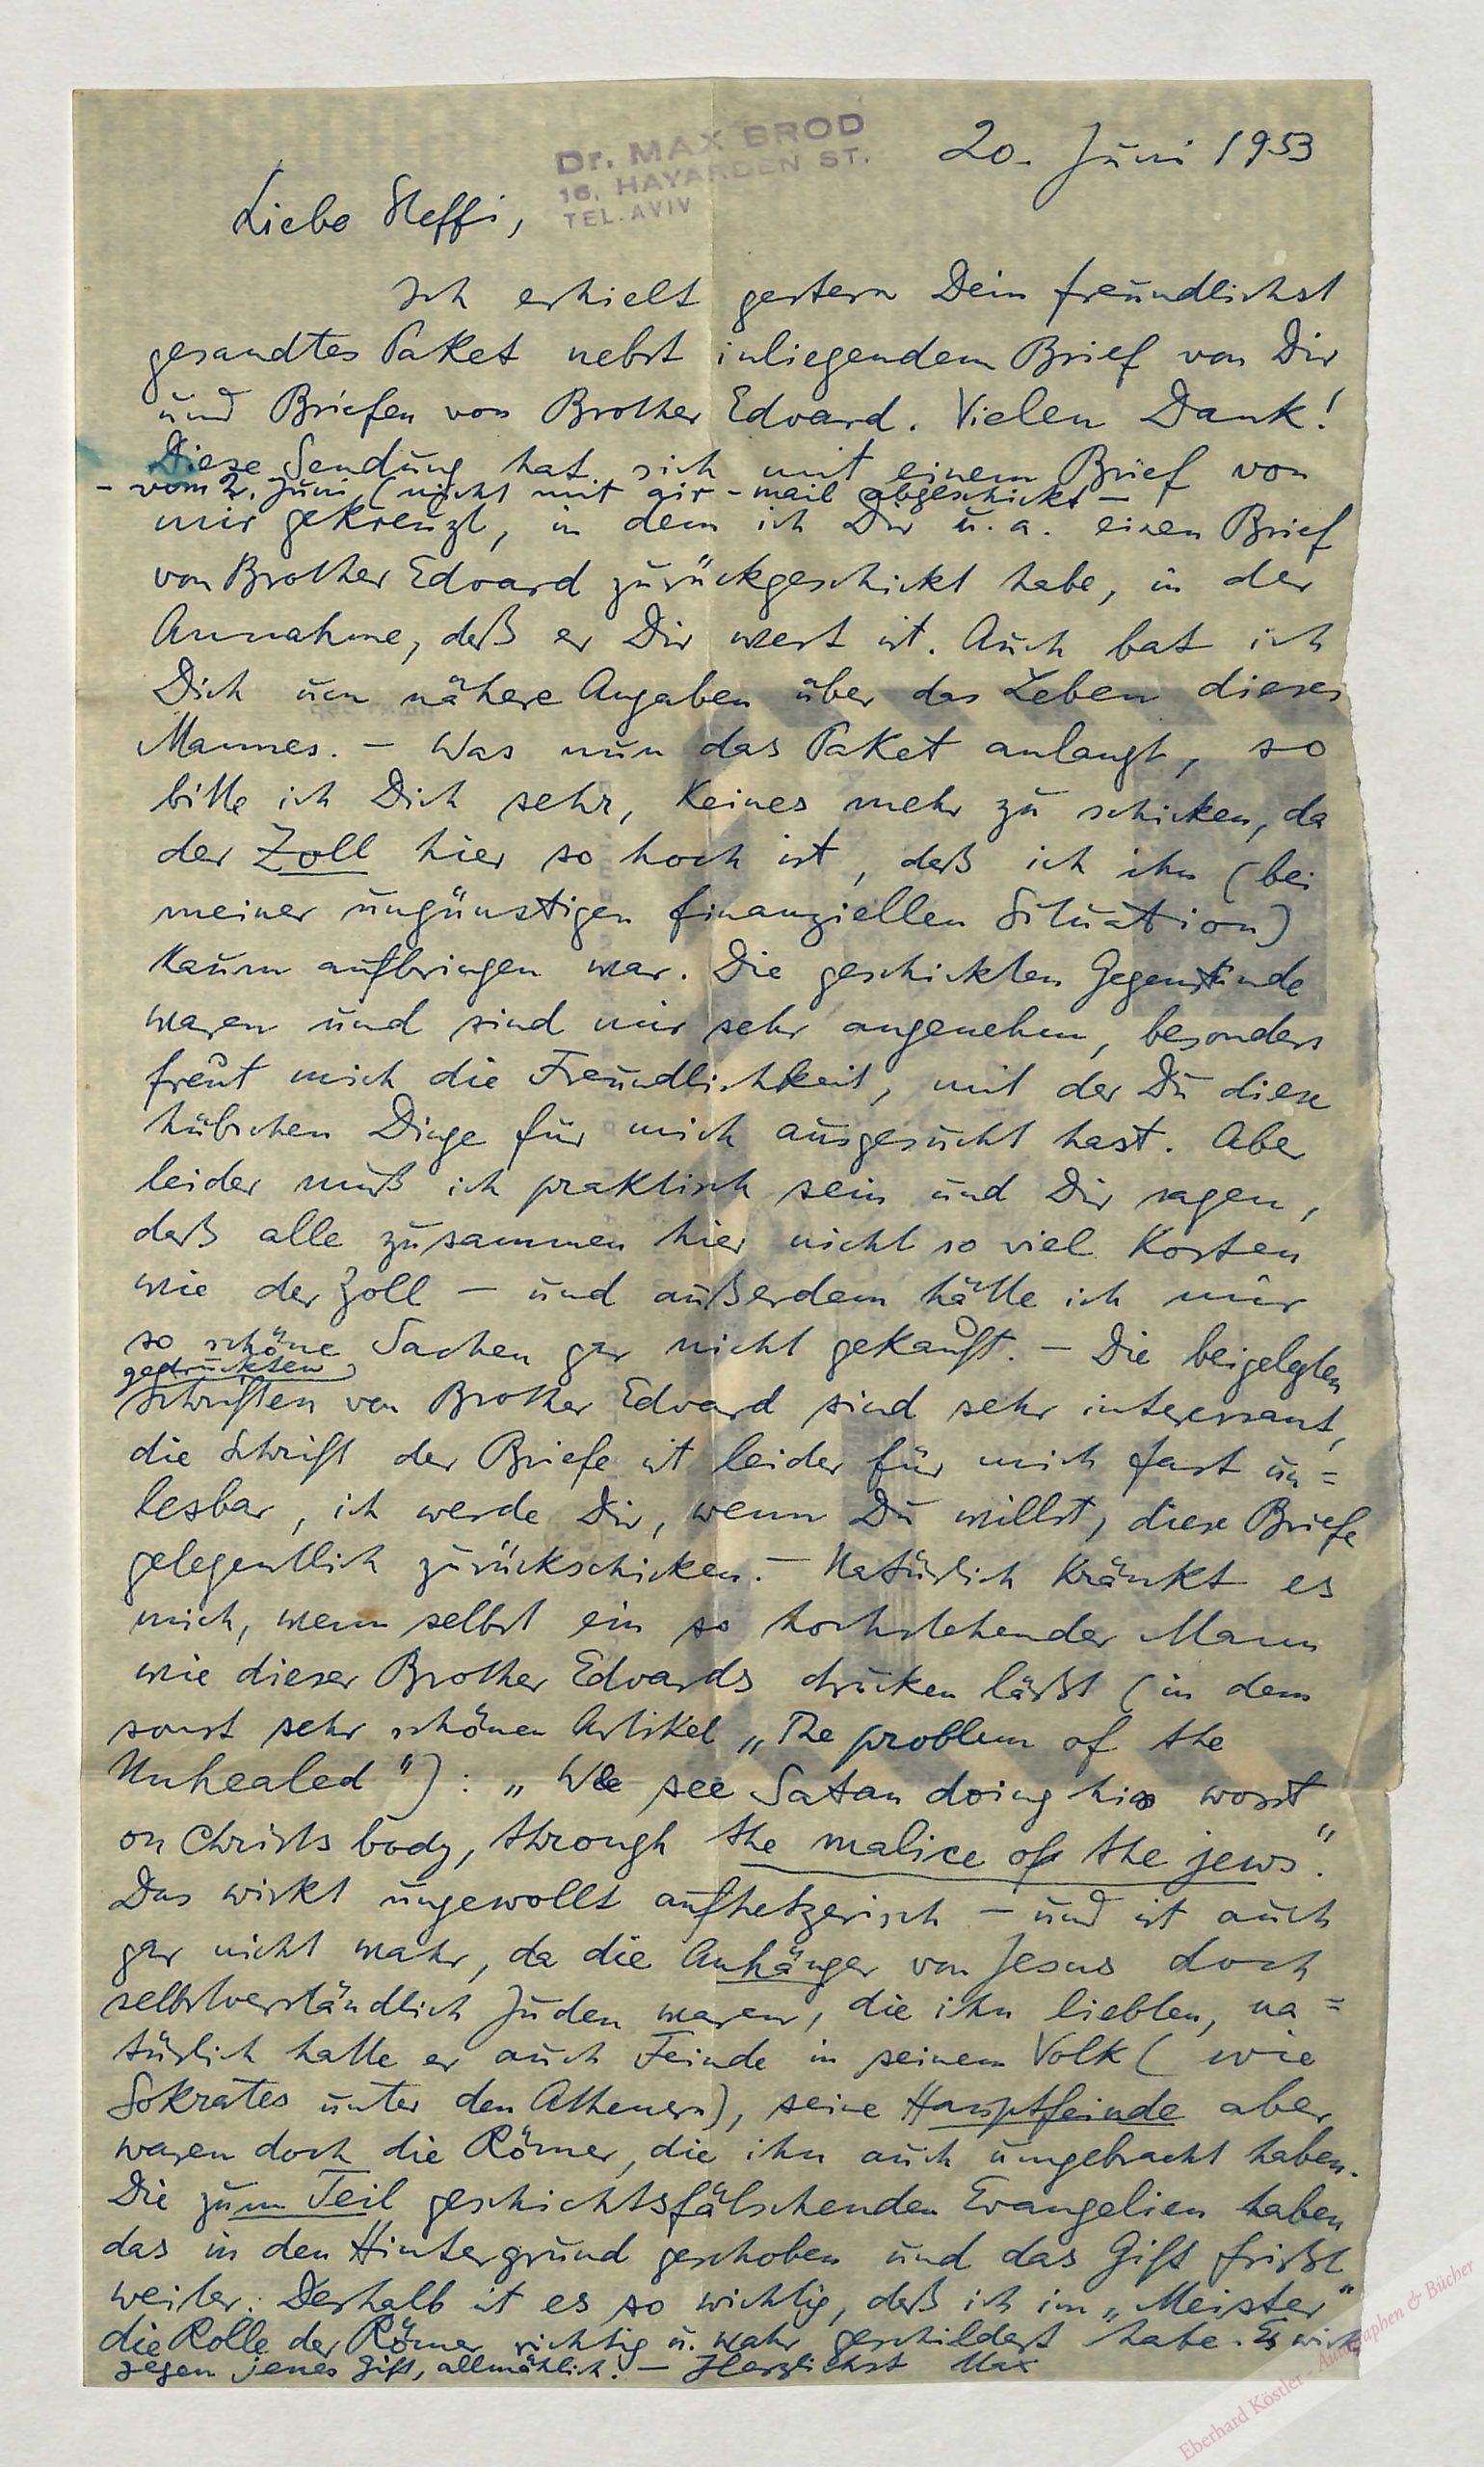 Dr. MAX BROD
16, HAYARDEN ST.
TEL. AVIV
20. Juni 1953
Liebe Steffi,
Ich erhielt gestern Dein freundlichst
gesandtes Paket nebst inliegendem Brief von Dir
und Briefen von Brother Edward. Vielen Dank!
Diese Sendung hat sich mit einem Brief von
- vom 2. Juni (nicht mit air-mail abgeschickt -
mir gekreuzt, in dem ich Dir u. a. einen Brief
von Brother Edward zurückgeschickt habe, in der
Annahme, daß er Dir wert ist. Auch bat ich
Dich um nähere Angaben über das Leben dieses
Mannes. - Was nun das Paket anlangt, so
bitte ich Dich sehr, keines mehr zu schicken, da
der Zoll hier so hoch ist, daß ich ihn (bei
meiner ungünstigen finanziellen Situation)
kaum aufbringen war. Die geschickten Gegenstände
waren und sind mir sehr angenehm, besonders
freut mich die Freundlichkeit, mit der Du diese
hübschen Dinge für mich ausgesucht hast. Aber
leider muß ich praktisch sein und Dir sagen,
daß alle zusammen hier nicht so viel kosten
wie der Zoll - und außerdem hätte ich mir
so schöne Sachen gar nicht gekauft. - Die beigelegten
gedruckten
Schriften von Brother Edward sind sehr interessant,
die Schrift der Briefe ist leider für mich fast un=
lesbar, ich werde Dir, wenn Du willst, diese Briefe
gelegentlich zurückschicken. - Natürlich kränkt es
mich, wenn selbst ein so hochstehender Mann
wie dieser Brother Edwards drucken läßt (in dem
sonst sehr schönen Artikel „The problem of the
Unhealed"): „We see Satan doing his worst
on Christs body, through the malice of the jews."
Das wirkt ungewollt aufhetzerisch - und ist auch
gar nicht wahr, da die Anhänger von Jesus doch
selbstverständlich Juden waren, die ihn liebten, na=
türlich hatte er auch Feinde in seinem Volk (wie
Sokrates unter den Athenern), seine Hauptfeinde aber
waren doch die Römer, die ihn auch umgebracht haben.
Die zum Teil geschichtsfälschenden Evangelien haben
das in den Hintergrund geschoben und das Gift frißt
weiter. Deshalb ist es so wichtig, daß ich im „Meister"
die Rolle der Römer richtig u. wahr geschildert habe. Es wirkt
gegen jenes Gift, allmählich. - Herzlichst Max
Eberhard Köstler - Autographen & Bücher